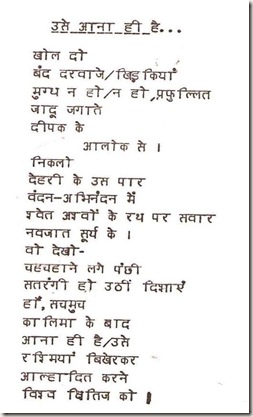 उसे आना ही है...
खोल दो
बंद दरवाजे/खिड़कियाँ
मुग्ध न हो/न हो,प्रफुल्लित
जादू जगाते
दीपक के
आलोक से ।
निकलो
देहरी के उस पार
वंदन-अभिनंदन में
श्वेत अश्वों के रथ पर सवार
नवजात सूर्य के ।
वो देखो-
चहचहाने लगे पंछी
सतरंगी हो उठीं दिशाएं
हाँ, सचमुच
कालिमा के बाद
आना ही है/उसे
रश्मियां बिखेरकर
आल्हादित करने
विश्व क्षितिज को ।